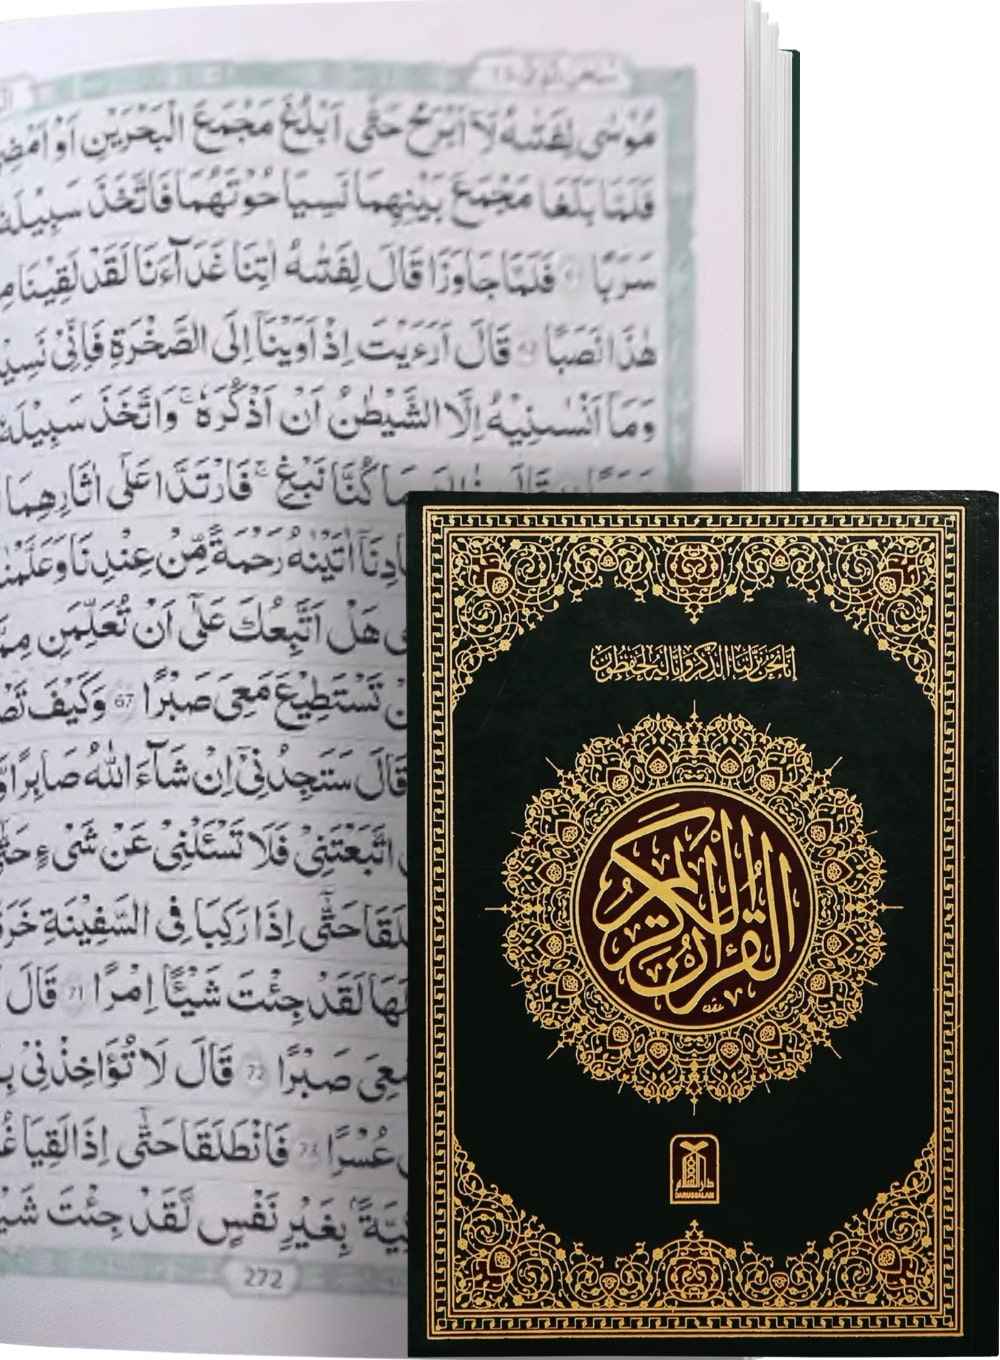 مُوْسٰى لِفَتٰىهُ لَآ اَبْرَحُ حَتّٰۤى اَبْلُغَ مَجْمَعَ الْبَحْرَيْنِ اَوْ
فَلَمَّا بَلَغَا مَجْمَعَ بَيْنِهِمَا نَسِيَا حُوْتَهُمَا فَاتَّخَذَ سَبِيْلَهٗ
سَرَبًا فَلَمَّا جَاوَزَا قَالَ لِفَتٰىهُ اٰتِنَا غَدَآءَنَا لَقَدْ لَقِيْنَا
هٰذَا نَصَبًا قَالَ اَرَءَيْتَ اِذْ اَوَيْنَآ اِلَى الصَّخْرَةِ فَاِنِّىْ
وَمَآ اَنْسٰىنِيْهُ اِلَّا الشَّيْطٰنُ اَنْ اَذْكُرَهٗ ۚ وَاتَّخَذَ سَبِيْلَهٗ
كُنَّا نَبْغِ ۖ فَارْتَدَّا عَلٰٓى اٰثَارِهِمَا
اٰتَيْنٰهُ رَحْمَةً مِّنْ عِنْدِنَا
هَلْ اَتَّبِعُكَ عَلٰٓى اَنْ تُعَلِّمَنِ
تَسْتَطِيْعَ مَعِىَ صَبْرًا 67 وَكَيْفَ
قَالَ سَتَجِدُنِىْٓ اِنْ شَآءَ اللّٰهُ صَابِرًا
اتَّبَعْتَنِىْ فَلَا تَسْئَلْنِىْ عَنْ شَىْءٍ
حَتّٰۤى اِذَا رَكِبَا فِى السَّفِيْنَةِ
لَقَدْ جِئْتَ شَيْئًا اِمْرًا 71 قَالَ
مَعِىَ صَبْرًا 72 قَالَ لَا تُؤَاخِذْنِىْ
عُسْرًا 73 فَانْطَلَقَا حَتّٰۤى اِذَا لَقِيَا
بِغَيْرِ نَفْسٍ لَّقَدْ جِئْتَ
272
إنا نحن نزلنا الذكر وإنا له لحافظون
القرآن الكريم
دار السلام
DARUSSALAM